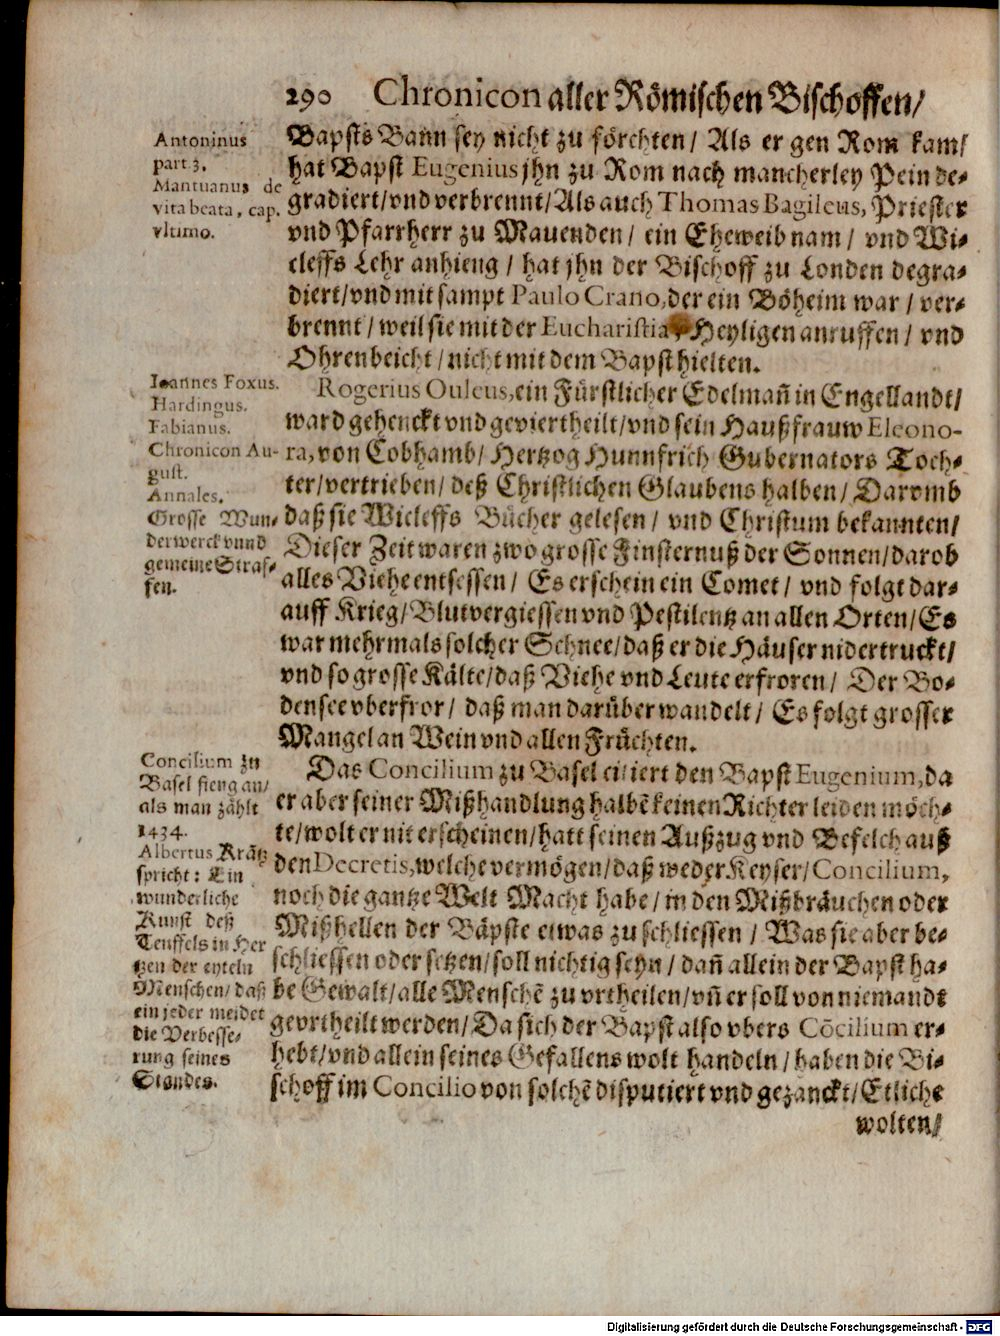 290 Chronicon aller Römischen Bischoffen/
Antoninus
part 3.
Mantuanus de
vita beata, cap.
vltimo.
Bapsts Bann sey nicht zu förchten/ Als er gen Rom kam/
hat Bapst Eugenius jhn zu Rom nach mancherley Pein de-
gradiert/vnd verbrennt/Als auch Thomas Bagileus, Priester
vnd Pfarrherr zu Mauenden/ ein Eheweib nam/ vnd Wi-
cleffs Lehr anhieng/ hat jhn der Bischoff zu Londen degra-
diert/vnd mit sampt Paulo Crano,der ein Böheim war/ ver-
brennt/weil sie mit der Eucharistia, Heyligen anruffen/ vnd
Ohrenbeicht/nicht mit dem Bapst hielten.
Ioannes Foxus.
Hardingus.
Fabianus.
Chronicon Au-
gust.
Annales.
Grosse Wun-
derwerck vnnd
gemeine Straf-
fen.
Rogerius Ouleus,ein Fürstlicher Edelmañ in Engellandt/
ward gehenckt vnd geviertheilt/vnd sein Haußfrauw Eleono-
ra,von Cobhamb/ Hertzog Hunnfrich Gubernators Toch-
ter/vertrieben/ deß Christlichen Glaubens halben/ Darvmb
daß sie Wicleffs Bücher gelesen/ vnd Christum bekannten/
Dieser Zeit waren zwo grosse Finsternuß der Sonnen/darob
alles Viehe entsessen/ Es erschein ein Comet/ vnd folgt dar-
auff Krieg/Blutvergiessen vnd Pestilentz an allen Orten/Es
war mehrmals solcher Schnee/daß er die Häuser nidertruckt/
vnd so grosse Kälte/daß Viehe vnd Leute erfroren/ Der Bo-
densee vberfror/ daß man darüber wandelt/ Es folgt grosser
Mangel an Wein vnd allen Früchten.
Concilium zu
Basel fieng an/
als man zählt
1434.
Albertus Krätz
spricht: Ein
wunderliche
Kunst deß
Teuffels in Her
tzen der eyteln
Menschen/ daß
ein jeder meidet
die Verbesse-
rung seines
Standes.
Das Concilium zu Basel citiert den Bapst Eugenium,da
er aber seiner Mißhandlung halbẽ keinen Richter leiden möch-
te/wolt er nit erscheinen/hatt seinen Außzug vnd Befelch auß
den Decretis,welche vermögen/daß weder Keyser/Concilium,
noch die gantze Welt Macht habe/ in den Mißbräuchen oder
Mißhellen der Bäpste etwas zu schliessen/ Was sie aber be-
schliessen oder setzen/soll nichtig seyn/ dañ allein der Bapst ha-
be Gewalt/alle Menschẽ zu vrtheilen/vñ er soll von niemandt
gevrtheilt werden/Da sich der Bapst also vbers Cõcilium er-
hebt/vnd allein seines Gefallens wolt handeln/haben die Bi-
schoff im Concilio von solchẽ disputiert vnd gezanckt/Etliche
wolten/
Digitalisierung gefördert durch die Deutsche Forschungsgemeinschaft - DFG